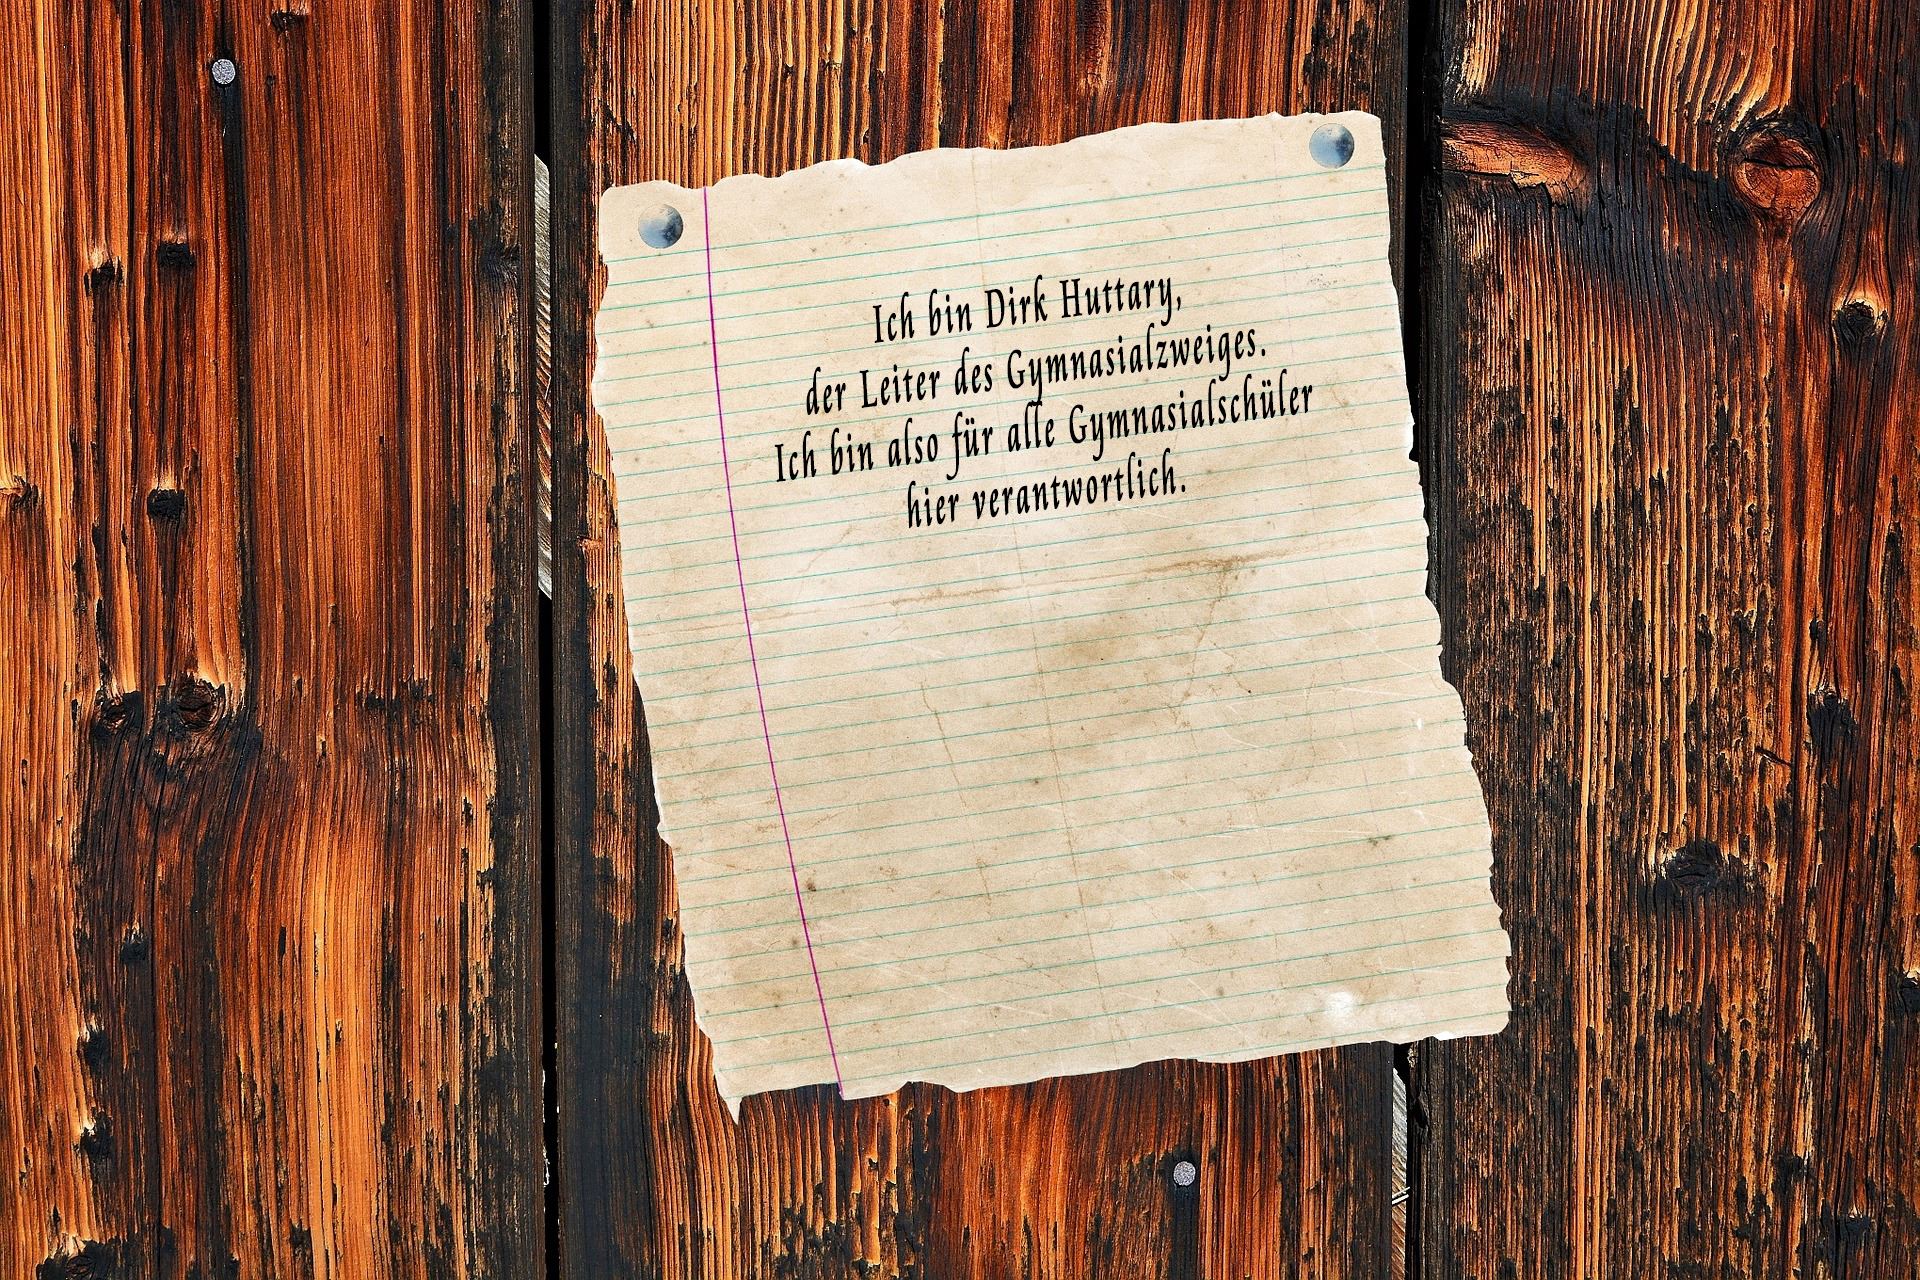 Ich bin Dirk Huttary,
der Leiter des Gymnasialzweiges.
Ich bin also für alle Gymnasialschüler
hier verantwortlich.